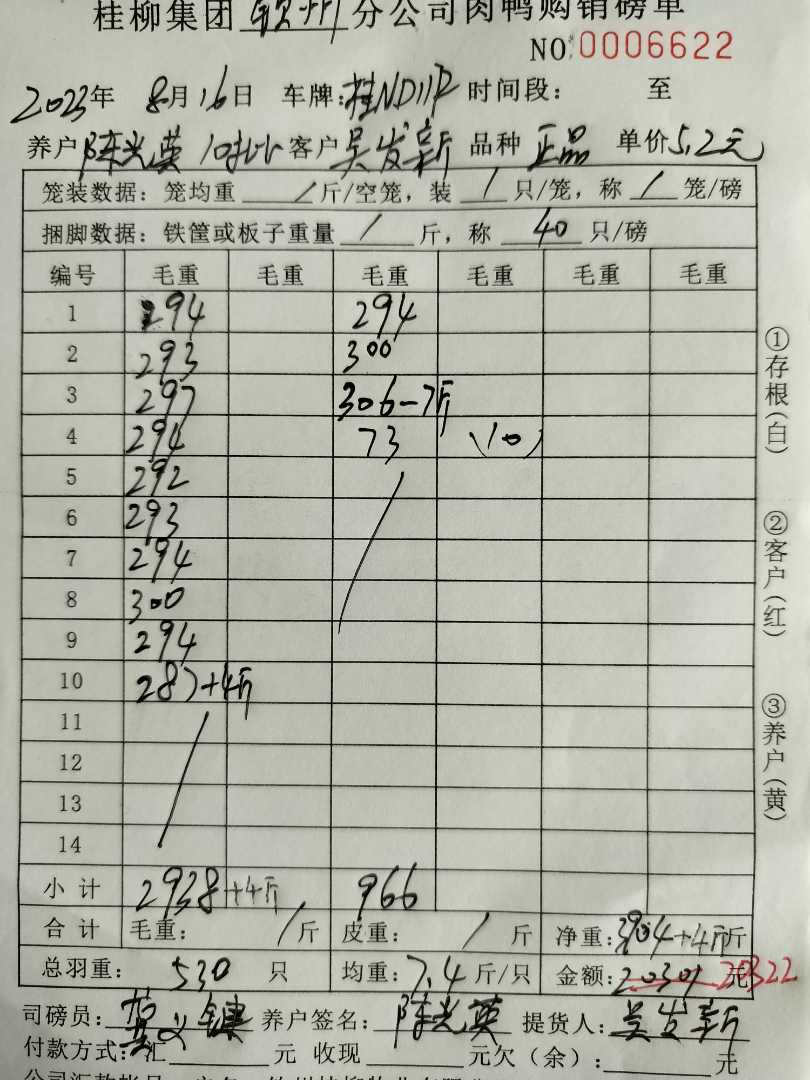 桂柳集团 钦州 分公司肉鸭购销磅单
NO:0006622
2023年 8月16日 车牌:桂ND11P 时间段: 至
养户 陈光英 客户 吴发新 品种 正品 单价 5.2元
笼装数据: 笼均重 / 斤/空笼, 装 / 只/笼, 称 / 笼/磅
捆脚数据: 铁筐或板子重量 / 斤, 称 40 只/磅
编号 毛重 毛重 毛重 毛重 毛重 毛重
1 294 294
2 293 300
3 297 306-7斤
4 294 73 (10)
5 292
6 293
7 294
8 300
9 294
10 287+4斤
11
12
13
14
小计 2938+4斤 966
合计 毛重: / 斤 皮重: / 斤 净重: 3904+4斤斤
总羽重: 530 只 均重: 7.4 斤/只 金额: 20301 元 20322
司磅员: 义键 养户签名: 陈光英 提货人: 吴发新
付款方式: 汇 元 收现 元欠(余): 元
①存根(白)
②客户(红)
③养户(黄)